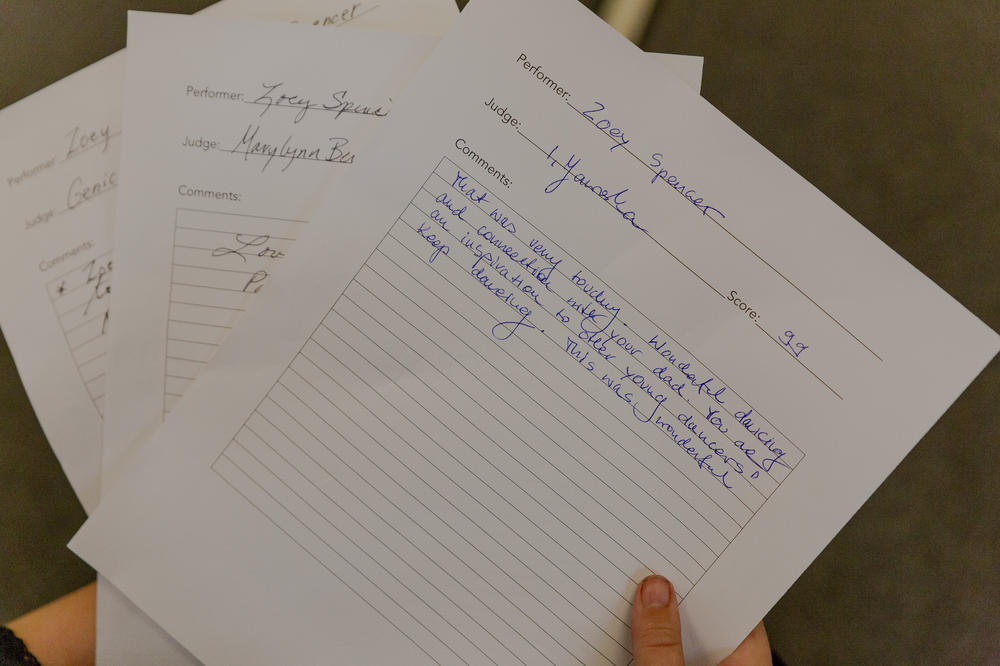 Performer: Zoey Spencer
Judge:
Score: 99
Comments:
That was very touching. Wonderful dancing
and connection with your dad. You are
an inspiration to other young dancers!
Keep dancing. This was wonderful
Performer: Zoey
Judge: Marylynn
Comments:
Performer: Zoey
Judge:
Comments: